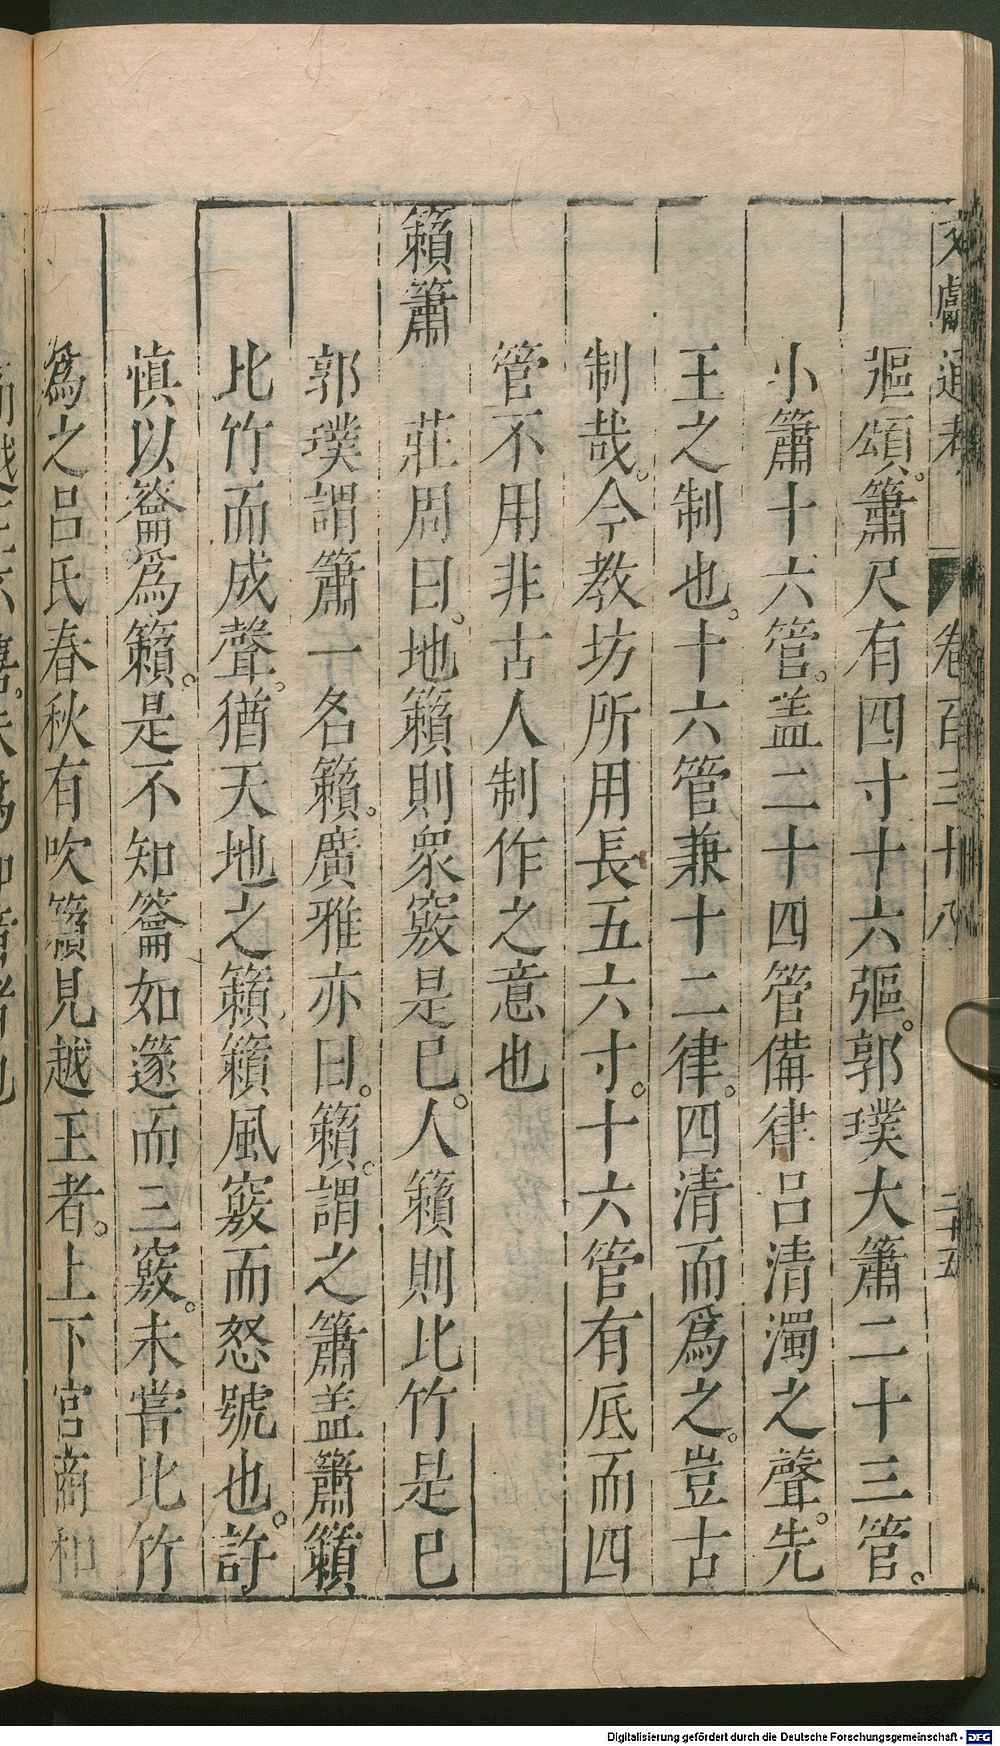 文獻通考 卷百三十八 二十五
彄頌。簫尺有四寸十六彄。郭璞大簫二十三管。
小簫十六管。盖二十四管備律呂清濁之聲。先
王之制也。十六管兼十二律。四清而爲之。豈古
制哉。今教坊所用長五六寸。十六管有底而四
管不用非古人制作之意也
籟簫
莊周曰。地籟則衆竅是已。人籟則比竹是已
郭璞謂簫一名籟。廣雅亦曰。籟。謂之簫盖簫籟
比竹而成聲。猶天地之籟。籟風竅而怒號也。許
慎以籥爲籟。是不知籥如篴而三竅。未嘗比竹
爲之呂氏春秋有吹籟見越王者。上下宮商和
Digitalisierung gefördert durch die Deutsche Forschungsgemeinschaft - DFG